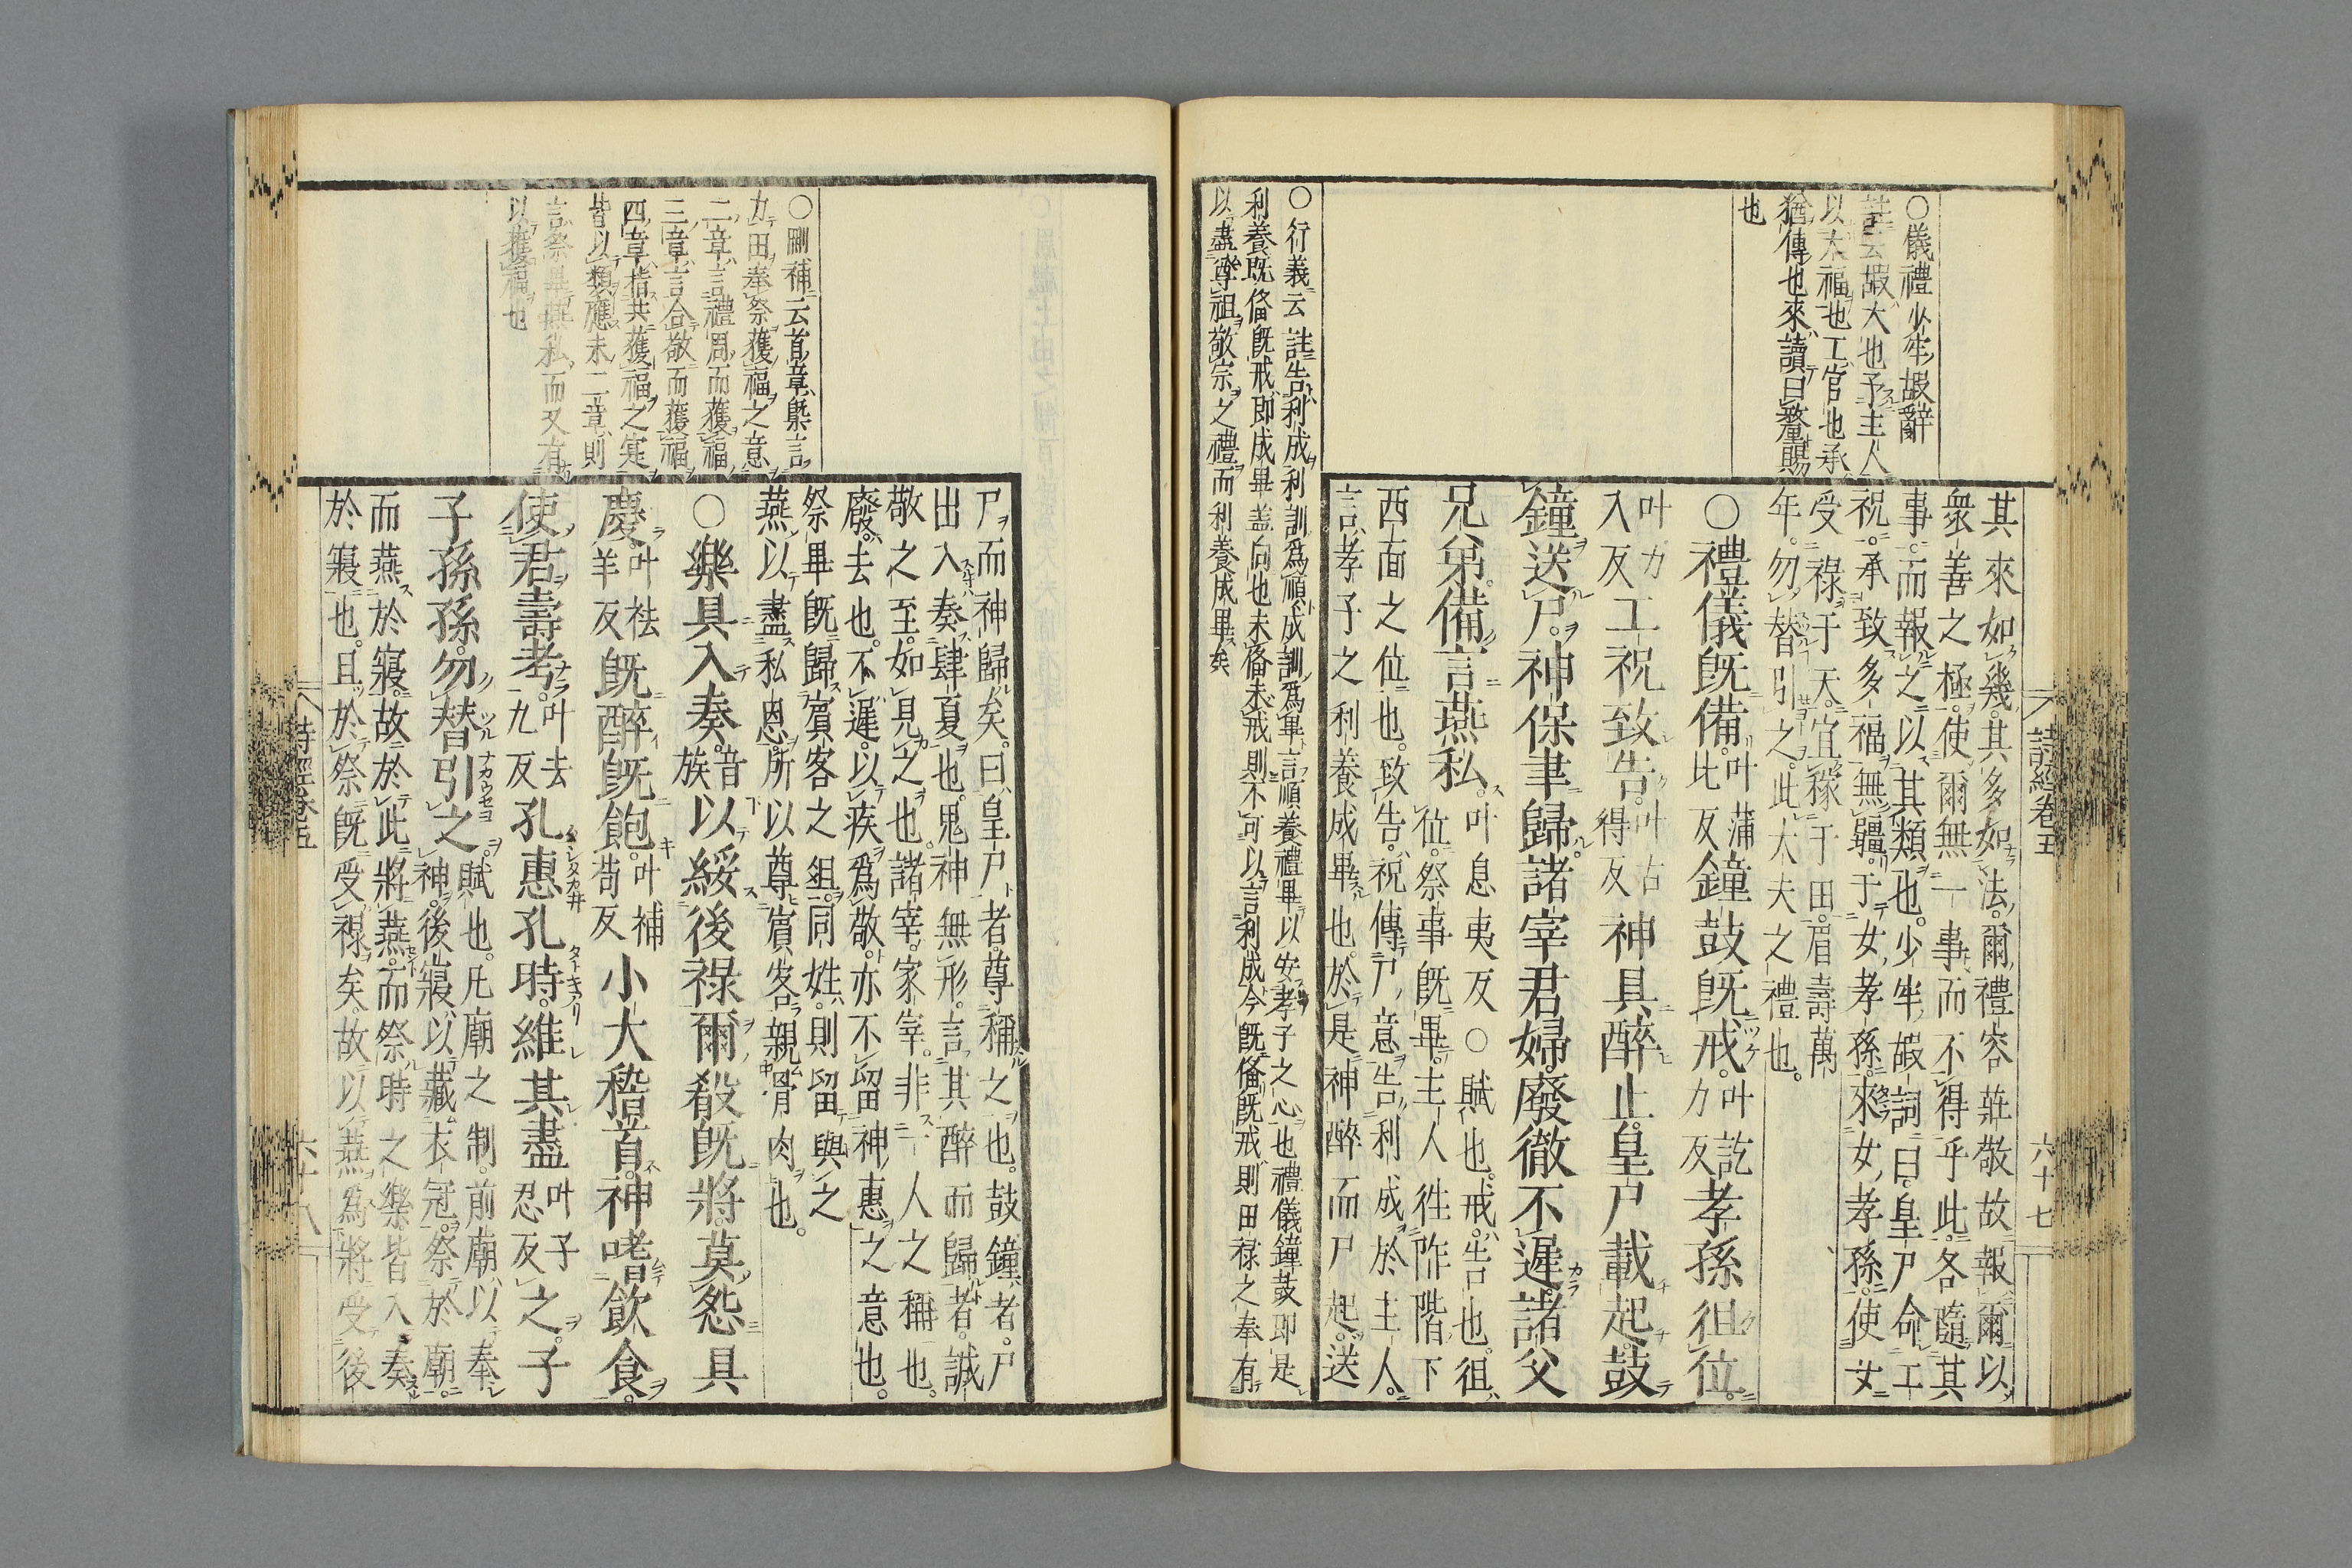 ○儀禮少牢嘏辭
註云嘏大也予主人
以大福也工官也承
猶傳也來讀曰釐賜
也
詩經卷五
六十七
其來如幾。其多如法。爾禮容莊敬。故報爾以
衆善之極。使爾無一事而不得乎此。各隨其
事。而報之以其類也。少牢嘏詞曰。皇尸命工
祝。承致多福無疆。于女孝孫。來女孝孫。使女
受祿于天。宜稼于田。眉壽萬
年。勿替引之。此大夫之禮也。
○禮儀既備。叶蒲比反鐘鼓既戒。叶訖力反孝孫徂位。
叶力入反工祝致告。叶古得反神具醉止。皇尸載起。鼓
鐘送尸。神保聿歸。諸宰君婦。廢徹不遲。諸父
兄弟。備言燕私。叶息夷反○賦也。戒。告也。徂
位。祭事既畢。主人徃阼階下
西面之位也。致告。祝傳尸意。告利成於主人。
言孝子之利養成畢也。於是神醉而尸起。送
○行義云註告利成利訓爲順成訓爲畢言順養禮畢以安孝子之心也禮儀鐘鼓即是
利養既俻既戒即成畢盖向也未俻未戒則不可以言利成今既俻既戒則田祿之奉有
以盡尊祖敬宗之禮而利養成畢矣
○刪補云首章槩言
力田奉祭獲福之意
二章言禮周而獲福
三章言合敬而獲福
四章指其獲福之寔
皆以類應末二章則
言祭畢燕私而又有
以獲福也
尸而神歸矣。曰皇尸者。尊稱之也。鼓鐘者。尸
出入奏肆夏也。鬼神無形。言其醉而歸者。誠
敬之至。如見之也。諸宰。家宰。非一人之稱也。
廢。去也。不遲。以疾爲敬。亦不留神惠之意也。
祭畢既歸賓客之俎。同姓則留與之
燕。以盡私恩。所以尊賓客。親骨肉也。
○樂具入奏。音族以綏後祿。爾殽既將。莫怨具
慶。叶祛羊反既醉既飽。叶補苟反小大稽首。神嗜飲食。
使君壽考。叶去九反孔惠孔時。維其盡叶子忍反之。子
子孫孫。勿替引之。賦也。凡廟之制。前廟以奉
神。後寢以藏衣冠。祭於廟。
而燕於寢。故於此將燕。而祭時之樂。皆入奏
於寢也。且於祭既受祿矣。故以燕爲將受後
詩經卷五
六十八